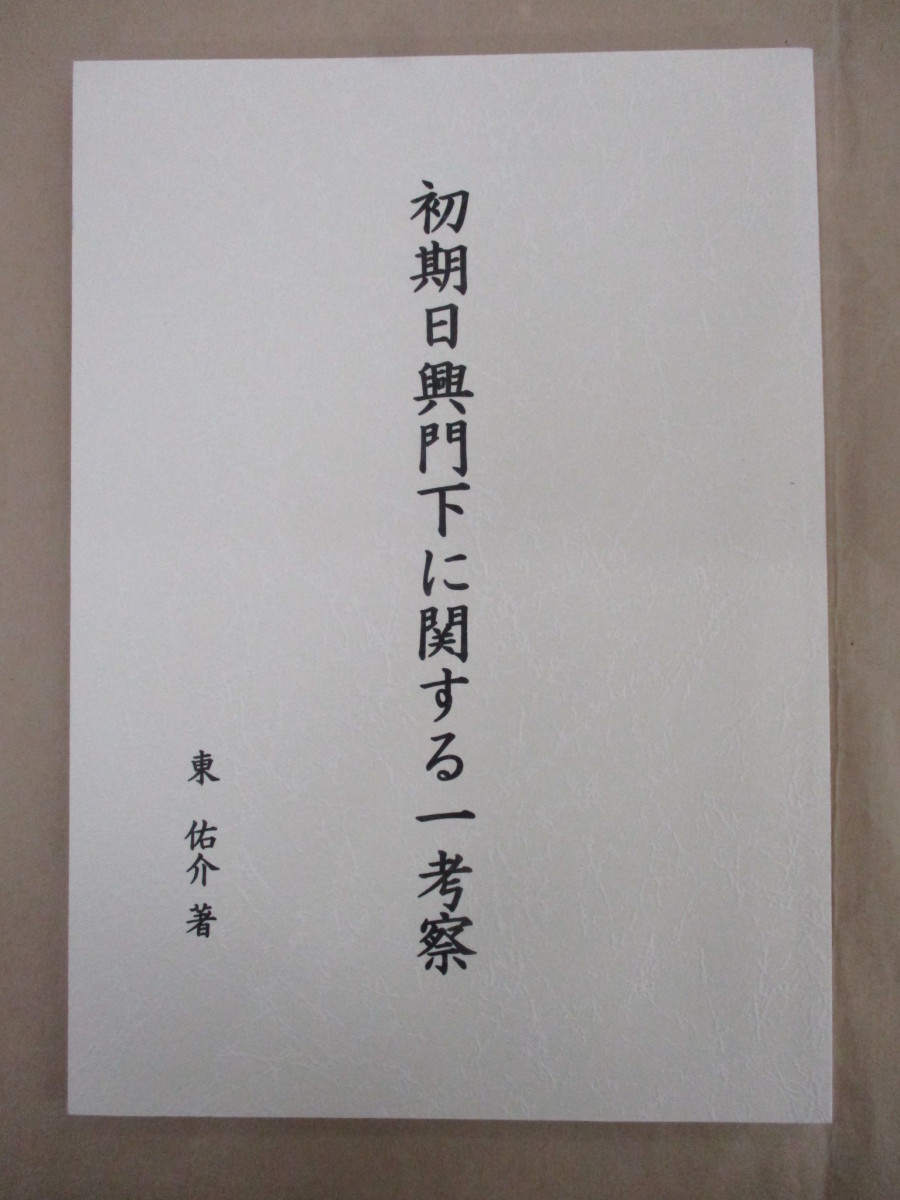 初期日興門下に関する一考察
東 佑介 著